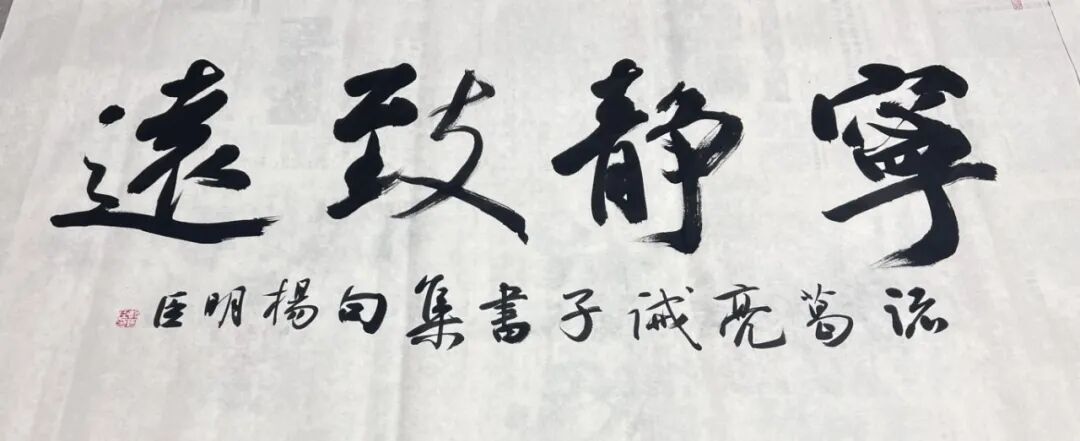 寧靜致遠
诸葛亮诫子書集句楊明臣